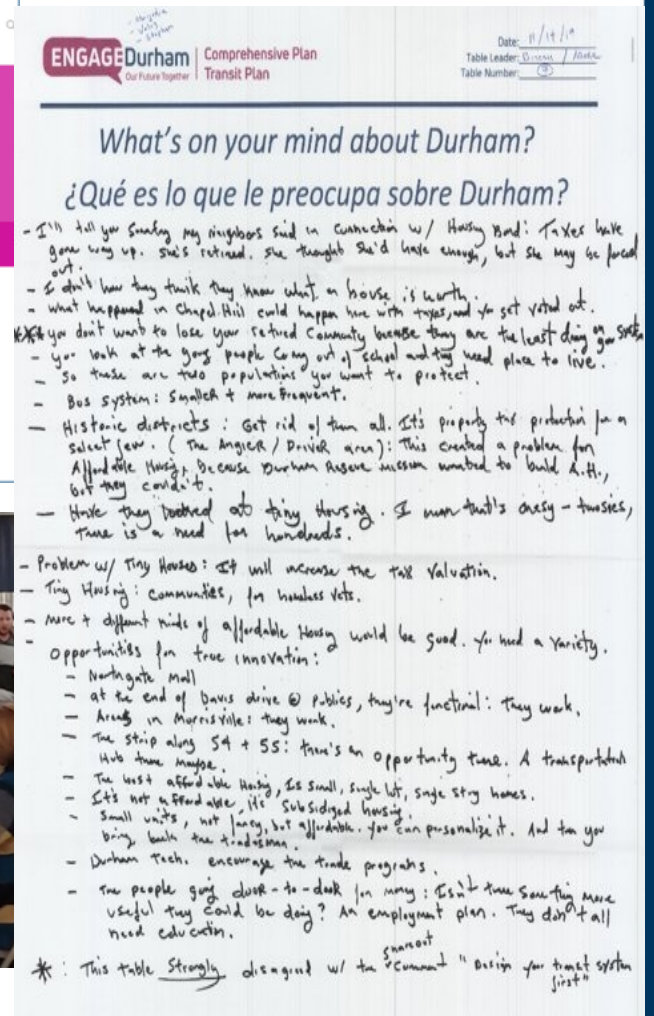 ENGAGEDurham
Our Future Together
Comprehensive Plan
Transit Plan
Date: 11/14/19
Table Leader:
Table Number: 7
What's on your mind about Durham?
¿Qué es lo que le preocupa sobre Durham?
- I'll tell you something my neighbors said in connection w/ Housing Bond: Taxes have
gone way up. She's retired. She thought she'd have enough, but she may be forced
out.
- I don't how they think they know what a house is worth.
- What happened in Chapel Hill could happen here with taxes, and you get voted out.
*** you don't want to lose your retired community because they are the least on your system
- you look at the people coming out of school and they need place to live.
- So these are two populations you want to protect.
- Bus system: Smaller + more frequent.
- Historic districts: Get rid of them all. It's property tax protection for a
select few. (The Angier / Driver area): This created a problem for
Affordable Housing, because Durham Rescue mission wanted to build A.H.,
but they couldn't.
- Have they looked at tiny Housing. I mean that's onesy - twosies,
there is a need for hundreds.
- Problem w/ Tiny Houses: It will increase the tax valuation.
- Tiny Housing: communities, for homeless vets.
- more + different kinds of affordable Housing would be good. You need a variety.
- opportunities for true innovation:
- Northgate Mall
- at the end of Davis drive @ Publics, they're functional: They work.
- Areas in Morrisville: they work.
- The strip along 54 + 55: there's an opportunity there. A transportation
Hub there maybe.
- The best affordable Housing, Is small, single lot, single story homes.
- It's not affordable, it's subsidized housing.
- Small units, not fancy, but affordable. You can personalize it. And then you
bring back the tradesman.
- Durham Tech. encourage the trade programs.
- The people going door-to-door for money: Isn't there something more
useful they could be doing? An employment plan. They don't all
need education.
*: This table Strongly disagreed w/ the shareout comment "Design your transit system
first"